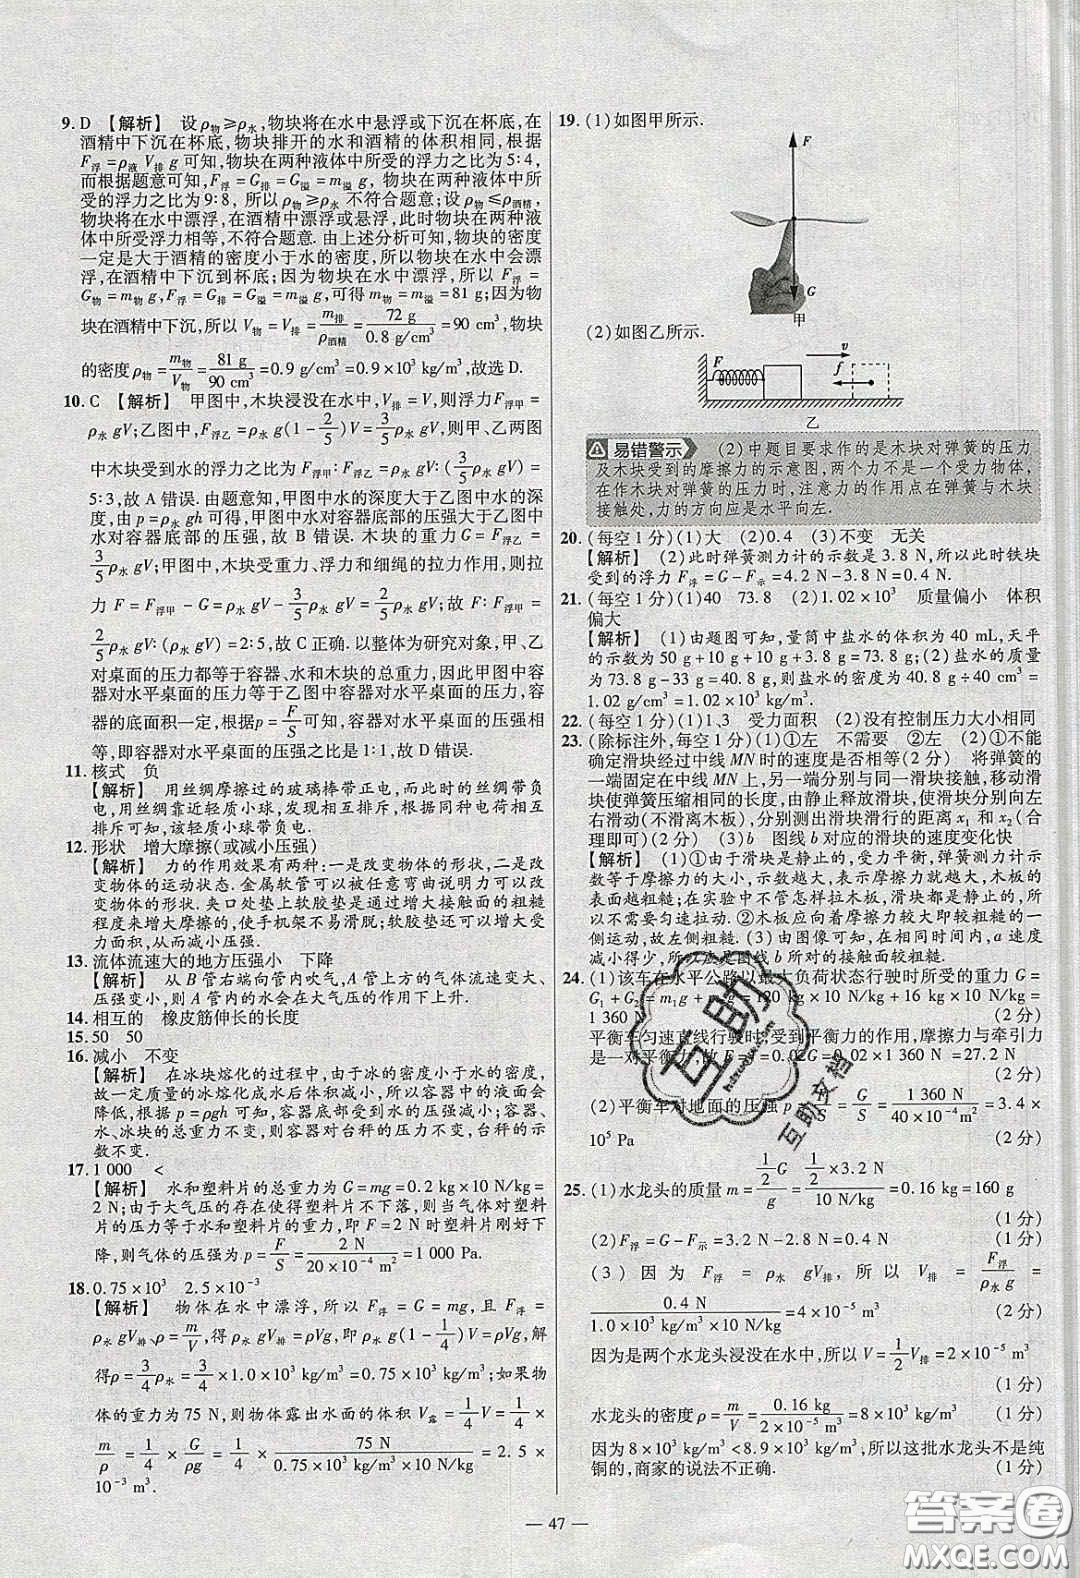 9. D 【解析】 设 ρ物≥ρ水,物块将在水中悬浮或下沉在杯底,在
酒精中下沉在杯底,物块排开的水和酒精的体积相同.根据
F浮=ρ液 V排 g 可知,物块在两种液体中所受的浮力之比为 5∶4,
而根据题意可知,F浮=G排=G溢=m溢 g,物块在两种液体中所
受的浮力之比为 9∶8, 所以 ρ物≥ρ水 不符合题意;设 ρ物≤ρ酒精,
物块将在水中漂浮,在酒精中漂浮或悬浮,此时物块在两种液
体中所受浮力相等,不符合题意.由上述分析可知,物块的密度
一定是大于酒精的密度小于水的密度,所以物块在水中会漂
浮,在酒精中下沉到杯底;因为物块在水中漂浮,所以 F浮=
G物=m物 g,F浮=G排=G溢=m溢 g,可得 m物=m溢=81 g;因为物
块在酒精中下沉,所以 V物=V排=m排/ρ酒精=72 g/0.8 g/cm³=90 cm³,物块
的密度为 ρ物=m物/V物=81 g/90 cm³=0.9 g/cm³=0.9×10³ kg/m³,故选 D.
10. C 【解析】 甲图中,木块浸没在水中,V排=V,则浮力 F浮甲=
ρ水 gV;乙图中,F浮乙=ρ水 g(1-2/5)V=3/5ρ水 gV,则甲、乙两图
中木块受到水的浮力之比为 F浮甲∶F浮乙=ρ水 gV∶(3/5ρ水 gV)=
5∶3,故 A 错误.由题意知,甲图中水的深度大于乙图中水的深
度,由 p=ρ水 gh 可得,甲图中水对容器底部的压强大于乙图中
水对容器底部的压强,故 B 错误.木块的重力 G=F浮乙=
3/5ρ水 gV;甲图中,木块受重力、浮力和细绳的拉力作用,则拉
力 F=F浮甲-G=ρ水 gV-3/5ρ水 gV=2/5ρ水 gV;故 F∶F浮甲=
2/5ρ水 gV∶(ρ水 gV)=2∶5,故 C 正确.以整体为研究对象,甲、乙
对桌面的压力都等于容器、水和木块的总重力,因此甲图中容
器对水平桌面的压力等于乙图中容器对水平桌面的压力,容
器的底面积一定,根据 p=F/S可知,容器对水平桌面的压强相
等,即容器对水平桌面的压强之比是 1∶1,故 D 错误.
11. 核式 负
【解析】 用丝绸摩擦过的玻璃棒带正电,而此时的丝绸带负
电,用丝绸靠近轻质小球,发现相互排斥,根据同种电荷相互
排斥可知,该轻质小球带负电.
12. 形状 增大摩擦(或减小压强)
【解析】 力的作用效果有两种:一是改变物体的形状,二是改
变物体的运动状态.金属软管可以被任意弯曲说明力可以改
变物体的形状.夹口处垫上软胶垫是通过增大接触面的粗糙
程度来增大摩擦的,使手机架不易滑脱;软胶垫还可以增大受
力面积,从而减小压强.
13. 流体流速大的地方压强小 下降
【解析】 从 B 管右端向管内吹气,A 管上方的气体流速变大、
压强变小,则 A 管内的水会在大气压的作用下上升.
14. 相互的 橡皮筋伸长的长度
15. 50 50
16. 减小 不变
【解析】 在冰块熔化的过程中,由于冰的密度小于水的密度,
故一定质量的冰熔化成水后体积减小,所以容器中的液面会
降低,根据 p=ρgh 可知,水对容器底的压强减小;容器、
水、冰块的总重力不变,则容器对台秤的压力不变,台秤的示
数不变.
17. 1 000 <
【解析】 水和塑料片的总重力为 G=mg=0.2 kg×10 N/kg=
2 N;由于大气压的存在使得塑料片不落下,则大气对塑料
片的压力等于水和塑料片的重力,即 F=2 N 时塑料片刚好下
降,则气体的压强为 p=F/S=2 N/20×10⁻⁴ m²=1 000 Pa.
18. 0.75×10³ 2.5×10⁻³
【解析】 物体在水中漂浮,所以 F浮=G=mg,且 F浮=
ρ水 gV排、ρ=m/V,得 ρ水 gV排=ρVg,即 ρ水 g(1-1/4)V=ρVg,解
得ρ=3/4ρ水=3/4×1.0×10³ kg/m³=0.75×10³ kg/m³;如果物
体的重力为 75 N,则物体露出水面的体积 V露=1/4V=1/4×
m/ρ=1/4×G/ρg=1/4×75 N/0.75×10³ kg/m³×10 N/kg=2.5×
10⁻³ m³.
19. (1)如图甲所示.
F
G
甲
(2)如图乙所示.
F
v
f
乙
易错警示 (2)中题目要求作的是木块对弹簧的压力
及木块受到的摩擦力的示意图,两个力不是一个受力物体,
在作木块对弹簧的压力时,注意力的作用点在弹簧与木块
接触处,力的方向应是水平向左.
20. (每空 1 分)(1)大 (2)0.4 (3)不变 无关
【解析】 (2)此时弹簧测力计的示数是 3.8 N,所以此时铁块
受到的浮力 F浮=G-F示=4.2 N-3.8 N=0.4 N.
21. (每空 1 分)(1)40 73.8 (2)1.02×10³ 质量偏小 体积
偏大
【解析】 (1)由题图可知,量筒中盐水的体积为 40 mL,天平
的示数为 50 g+10 g+10 g+3.8 g=73.8 g;(2)盐水的质量
为 73.8 g-33 g=40.8 g,则盐水的密度为 40.8 g÷40 cm³=
1.02 g/cm³=1.02×10³ kg/m³.
22. (每空 1 分)(1)1、3 受力面积 (2)没有控制压力大小相同
23. (除标注外,每空 1 分)(1)①左 不需要 ②左 (2)①不能
确定滑块经过中线 MN 时的速度是否相同(2 分) 将弹簧的
一端固定在中线 MN 上,另一端分别与同一滑块接触,移动滑
块使弹簧压缩相同的长度,由静止释放滑块,使滑块分别向左
右滑动(不滑离木板),分别测出滑块滑行的距离 x₁ 和 x₂(合
理即可)(2 分) (3)b 图线 b 对应的滑块的速度变化快
【解析】 (1)①由于滑块是静止的,受力平衡,弹簧测力计示
数等于摩擦力的大小,弹簧测力计示数越大,摩擦力就越大,木板的
表面越粗糙;在实验中不管怎样拉木板,滑块是静止的,所
以不需要匀速拉动.②木板应向着摩擦力较大即较粗糙的一
侧运动,故左侧粗糙.(3)由图像可知,在相同时间内,a 速度
减小得少,所以应是图线 b 对应的接触面较粗糙.
24. (1)该车在水平公路以最大负荷状态行驶时所受的重力 G=
G₁+G₂=m₁g+m₂g=120 kg×10 N/kg+16 kg×10 N/kg=
1 360 N (2 分)
平衡车匀速直线行驶时,受到平衡力的作用,摩擦力与牵引力
是一对平衡力,故 F=f=0.02G=0.02×1 360 N=27.2 N
(2 分)
(2)平衡车对地面的压强 p=F/S=G/S=1 360 N/40×10⁻⁴ m²=3.4×
10⁵ Pa (2 分)
25. (1)水龙头的质量 m=½G/g=½×3.2 N/10 N/kg=0.16 kg=160 g
(1 分)
(2)F浮=G-F示=3.2 N-2.8 N=0.4 N (1 分)
(3)因为 F浮=ρ水 gV排,所以 V排=F浮/ρ水 g=
0.4 N/1.0×10³ kg/m³×10 N/kg=4×10⁻⁵ m³ (2 分)
因为是两个水龙头浸没在水中,所以 V=1/2V排=2×10⁻⁵ m³
(1 分)
水龙头的密度 ρ=m/V=0.16 kg/2×10⁻⁵ m³=8×10³ kg/m³ (2 分)
因为 8×10³ kg/m³<8.9×10³ kg/m³,所以这批水龙头不是纯
铜的,商家的说法不正确. (1 分)
— 47 —
互助
互助文档
答案圈
MXQE.COM